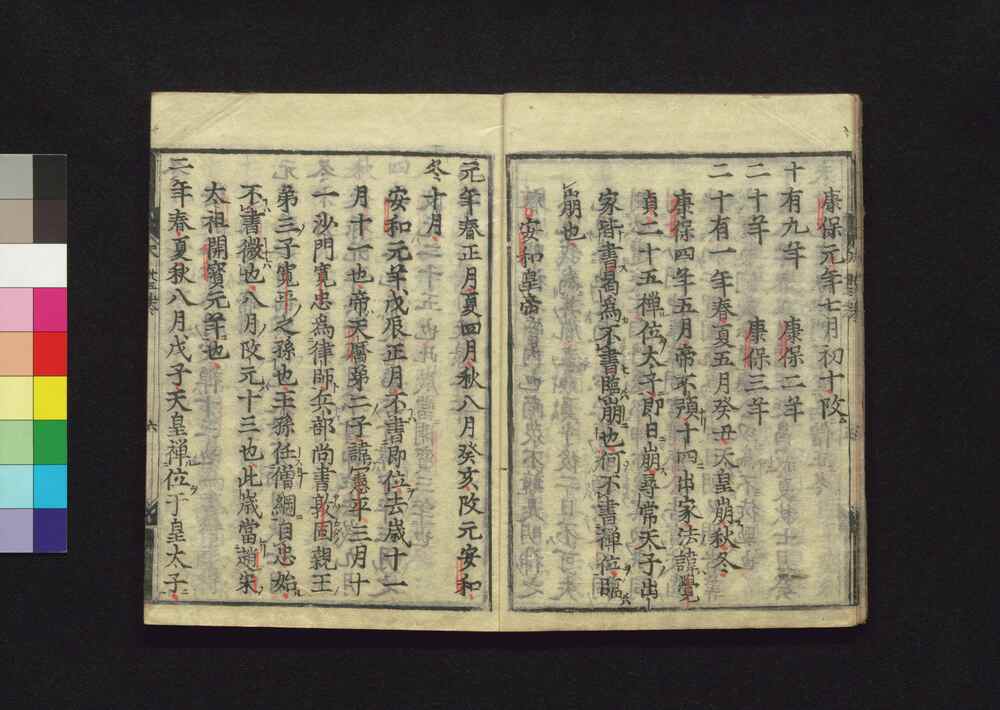 康保元年七月初十改
十有九年　康保二年
二十年　康保三年
二十有一年春夏五月癸丑天皇崩秋冬
康保四年五月帝不預十四出家法諱覺
貞二十五禅位太子即日崩尋常天子出
家皆書曷為不書臨崩也何不書禅位臨
崩也
安和皇帝
元年春正月夏四月秋八月癸亥改元安和
冬十月
安和元年戊辰正月不書即位去歳十一
月十一也帝天暦第二子諱憲平三月十
一沙門寛忠為律師兵部尚書敦固親王
第三子寛平之孫也王孫任僧綱自忠始
不書微也八月改元十三也此歳當趙宋
太祖開寳元年也
二年春夏秋八月戊子天皇禅位于皇太子
六